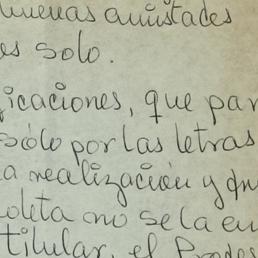 nuevas amistades
es solo.
ficaciones, que par
sólo por las letras
a realización y qu
oleta no se la en
titular, el Profes